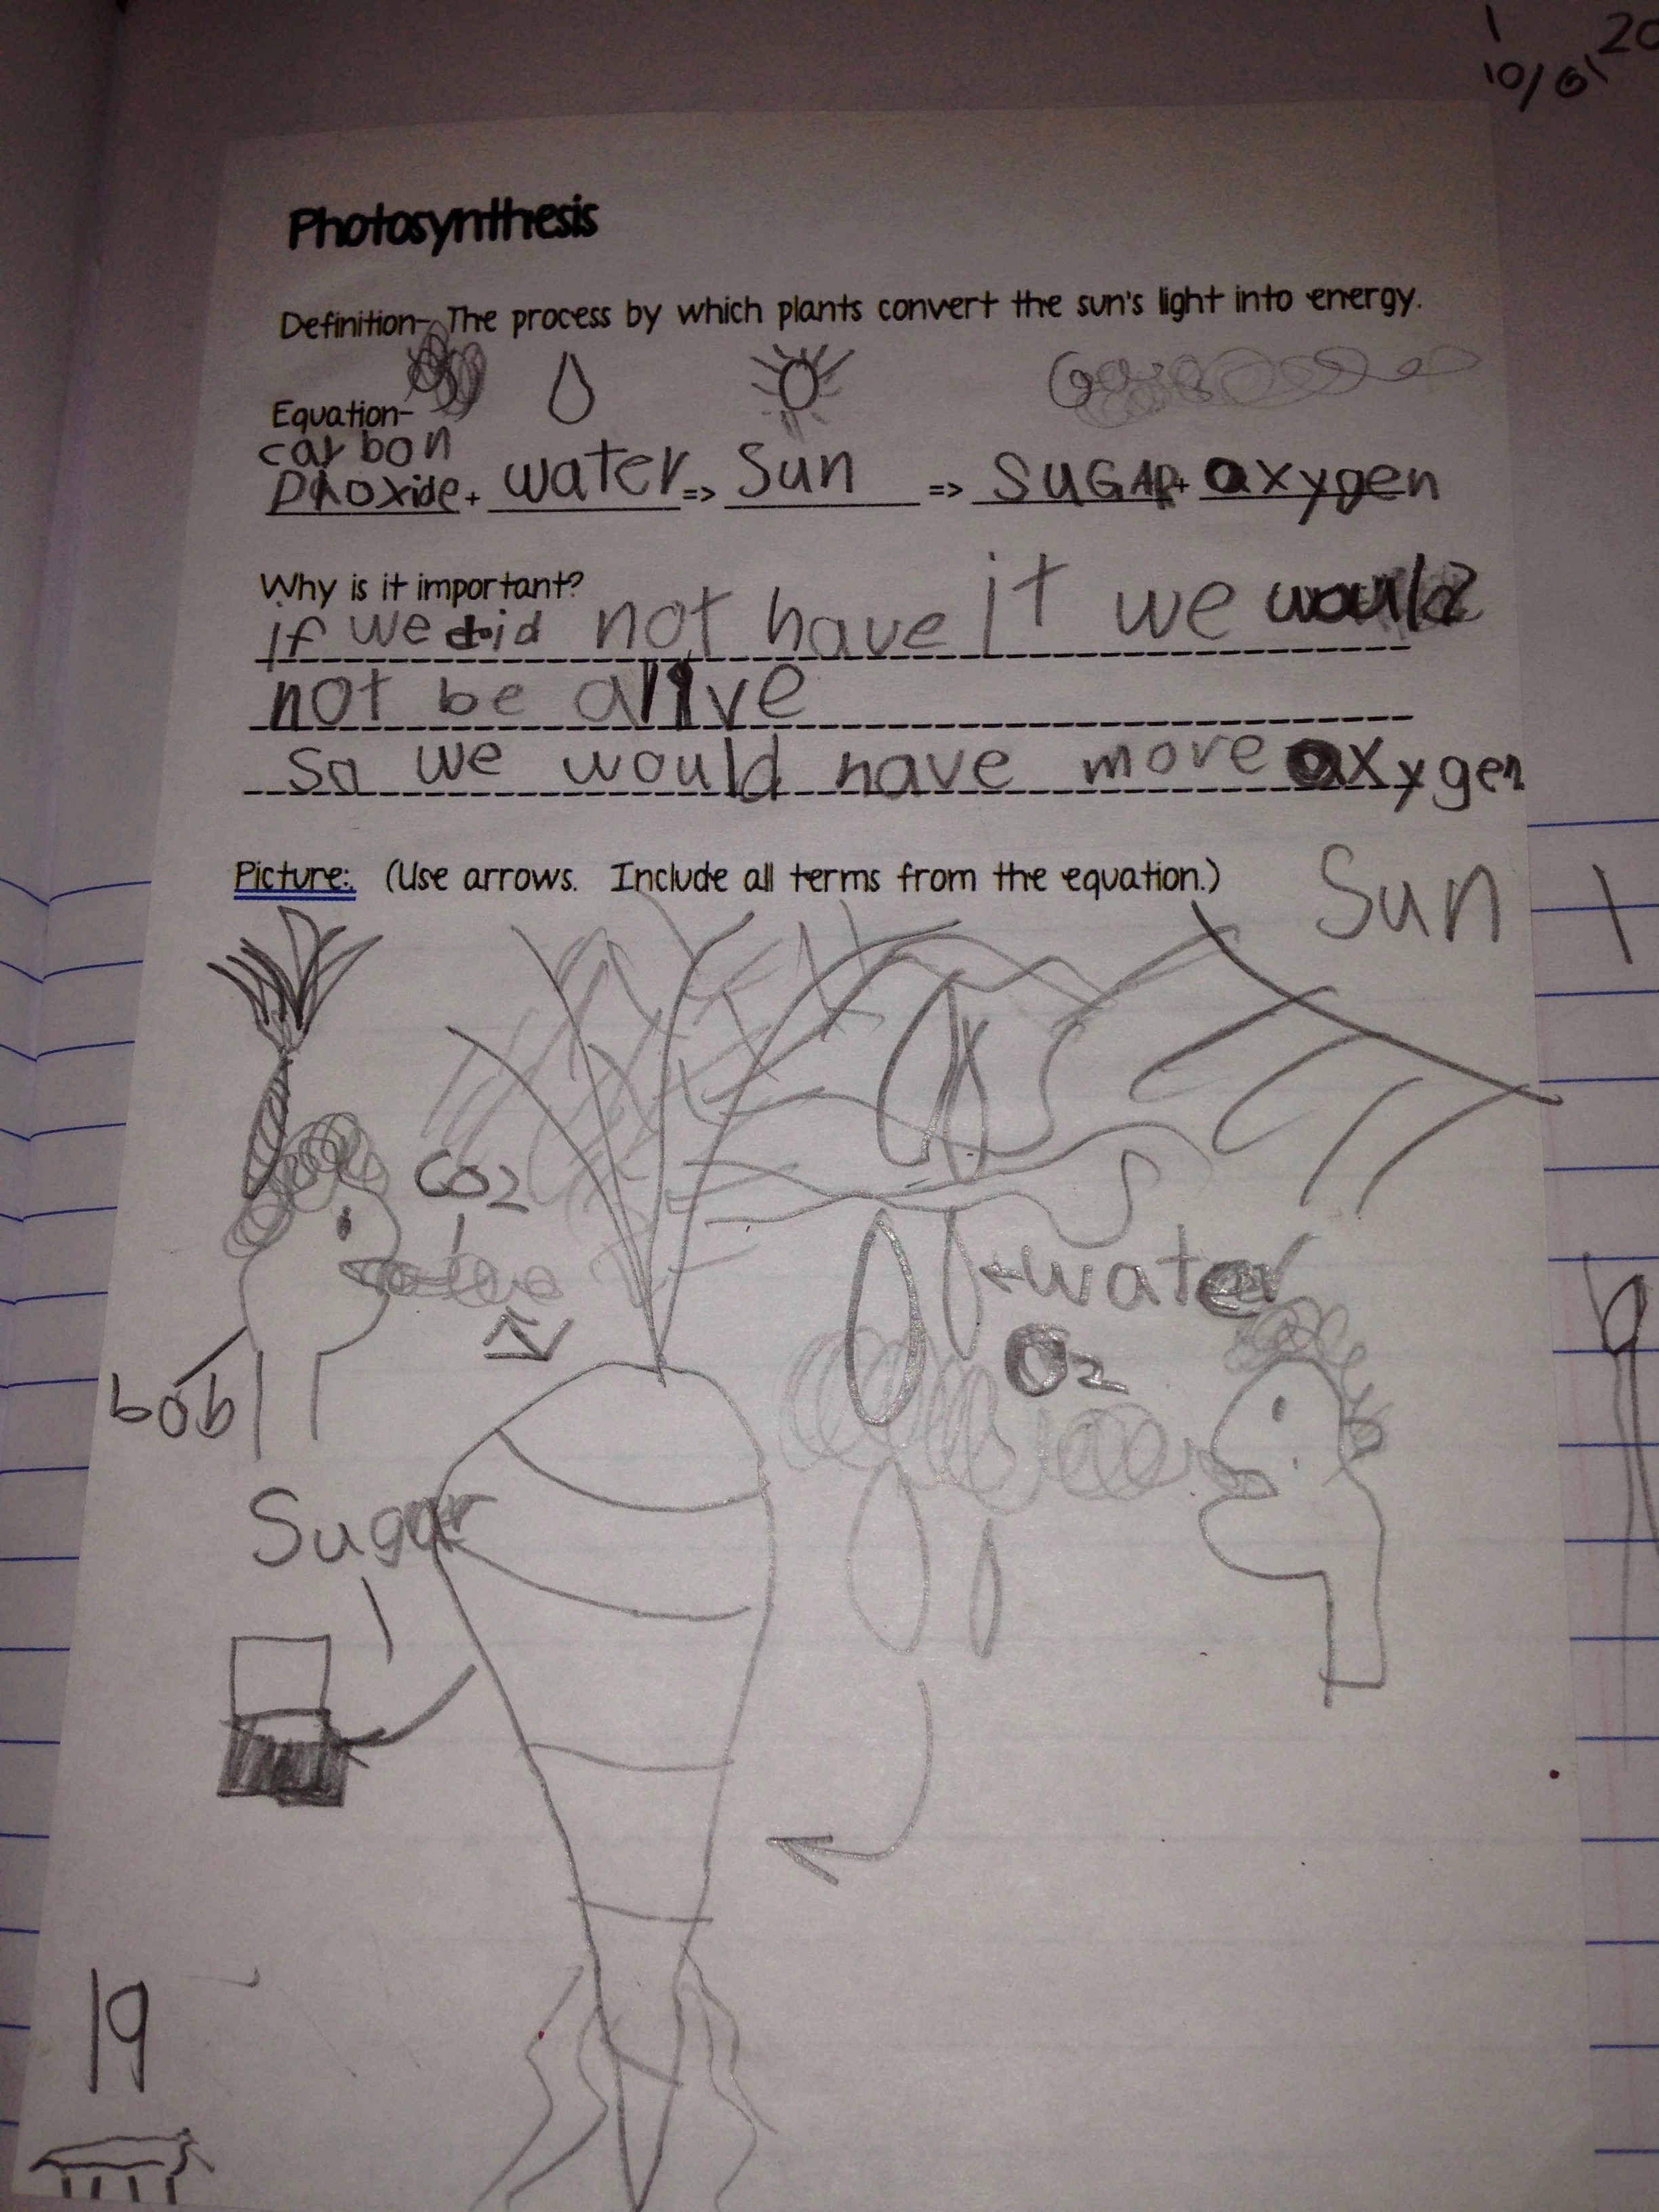 20
Photosynthesis
Definition- The process by which plants convert the sun's light into energy.
Equation-
carbon
Dioxide + water => Sun => SUGAR + oxygen
Why is it important?
if we did not have it we would
not be alive
So we would have more oxygen
Picture: (Use arrows. Include all terms from the equation.)
Sun
CO2
water
O2
bob
Sugar
19